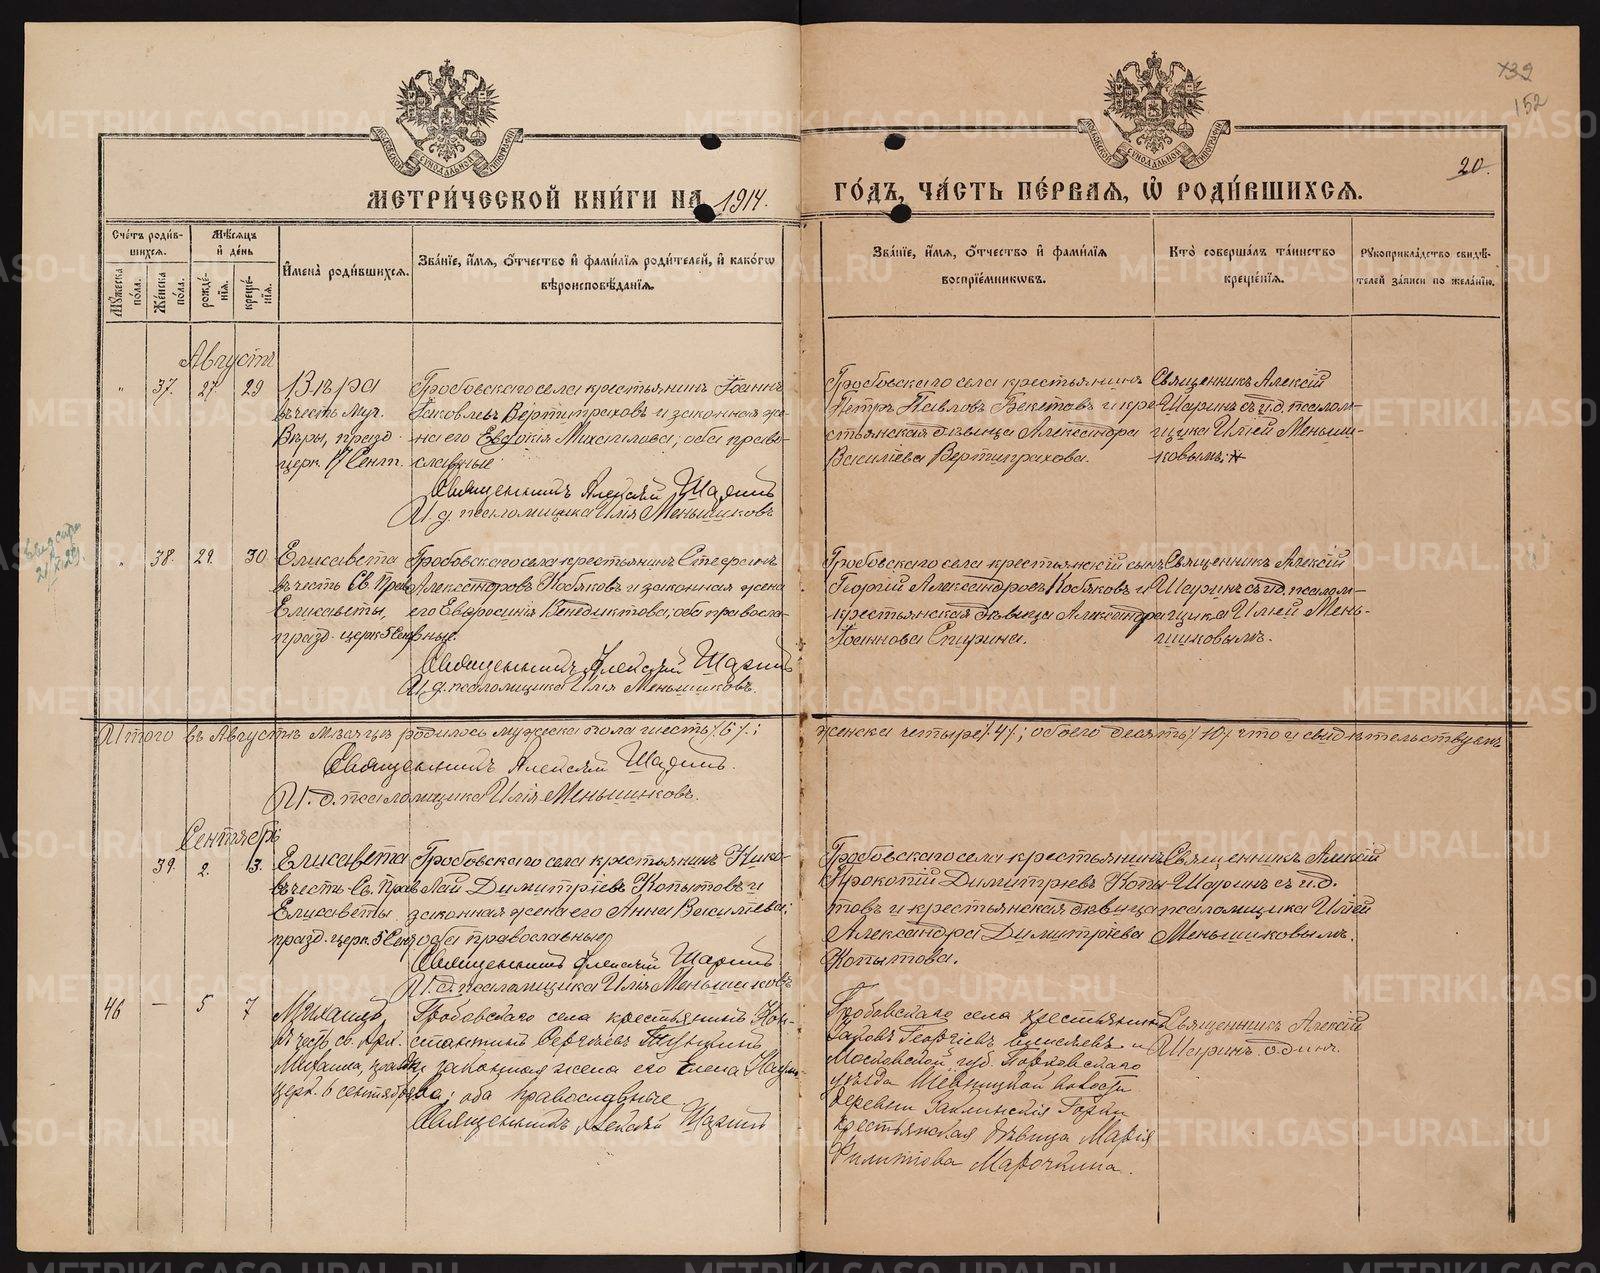 152
20.
МЕТРИ́ЧЕСКОЙ КНИ́ГИ НА 1914.
ГО́ДЪ, ЧА́СТЬ ПЕ́РВАѦ, Ѡ РОДИ́ВШИХСѦ.
Сче́тъ роди́в-
шихся.
Му́жеска по́ла.
Же́нска по́ла.
Мѣ́сяцъ
и де́нь
рожде́-
нїя.
креще́-
нїя.
Имена̀ роди́вшихся.
Зва́нїе, и́мя, о́тчество и фами́лїя роди́телей, и како́гѡ
вѣроисповѣ́данїя.
Зва́нїе, и́мя, о́тчество и фами́лїя
воспрїе́мникѡвъ.
Кто̀ соверша́лъ та́инство
креще́нїя.
Рукоприкла́дство свидѣ́-
телей за́писи по жела́нїю.
Августъ
"
37.
27.
29
Вѣра
въ честь муч.
Вѣры, празд.
церк. 17 Сент.
Гробовскаго села крестьянинъ Іоаннъ
Іаковлевъ Вертипраховъ и законная же-
на его Евдокія Михаилова; оба право-
славные
Священникъ Алексій Шаринъ
И. д. псаломщика Илія Меньшиковъ
Гробовскаго села крестьянинъ
Петръ Павловъ Бекетовъ и кре-
стьянская дѣвица Александра
Василіева Вертипрахова.
Священникъ Алексій
Шаринъ съ и.д. псалом-
щика Иліей Меньши-
ковымъ.
"
38.
29.
30
Елисавета
въ честь Св. Прав.
Елисаветы,
празд. церк. 5 Сен.
Гробовскаго села крестьянинъ Стефанъ
Александровъ Косяковъ и законная жена
его Евфросинія Венедиктова, оба правосла-
вные.
Священникъ Алексій Шаринъ
И. д. псаломщика Илія Меньшиковъ.
Гробовскаго села крестьянскій сынъ
Георгій Александровъ Косяковъ и
крестьянская дѣвица Александра
Іоаннова Спирина.
Священникъ Алексій
Шаринъ съ и.д. псалом-
щика Иліей Мень-
шиковымъ.
Итого въ Августѣ мѣсяцѣ родилось мужска пола шесть /6/.;
женска четыре /4/; обоего десять /10/ что и свидѣтельствуемъ
Священникъ Алексій Шаринъ.
И. д. псаломщика Илія Меньшиковъ.
Сентябрь
39.
2.
3.
Елисавета
въ честь Св. Прав.
Елисаветы
празд. церк. 5 Сен.
Гробовскаго села крестьянинъ Нико-
лай Димитріевъ Копытовъ и
законная жена его Анна Василіева;
оба православные
Священникъ Алексій Шаринъ
И. д. псаломщика Илія Меньшиковъ
Гробовскаго села крестьянинъ
Прокопій Димитріевъ Копы-
товъ и крестьянская дѣвица
Александра Димитріева
Копытова.
Священникъ Алексій
Шаринъ съ и.д.
псаломщика Иліей
Меньшиковымъ.
46
—
5
7
Михаилъ,
въ честь св. Арх.
Михаила, празд.
церк. 6 сентября
Гробовскаго села крестьянинъ Кон-
стантинъ Сергѣевъ
законная жена его Елена
оба православные
Священникъ Алексій Шаринъ
Гробовскаго села крестьянинъ
Іаковъ Георгіевъ и
Московской губ.
уѣзда волости
деревни
крестьянская дѣвица Марія
Филиппова Марочкина.
Священникъ Алексій
Шаринъ один.
METRIKI.GASO-URAL.RU